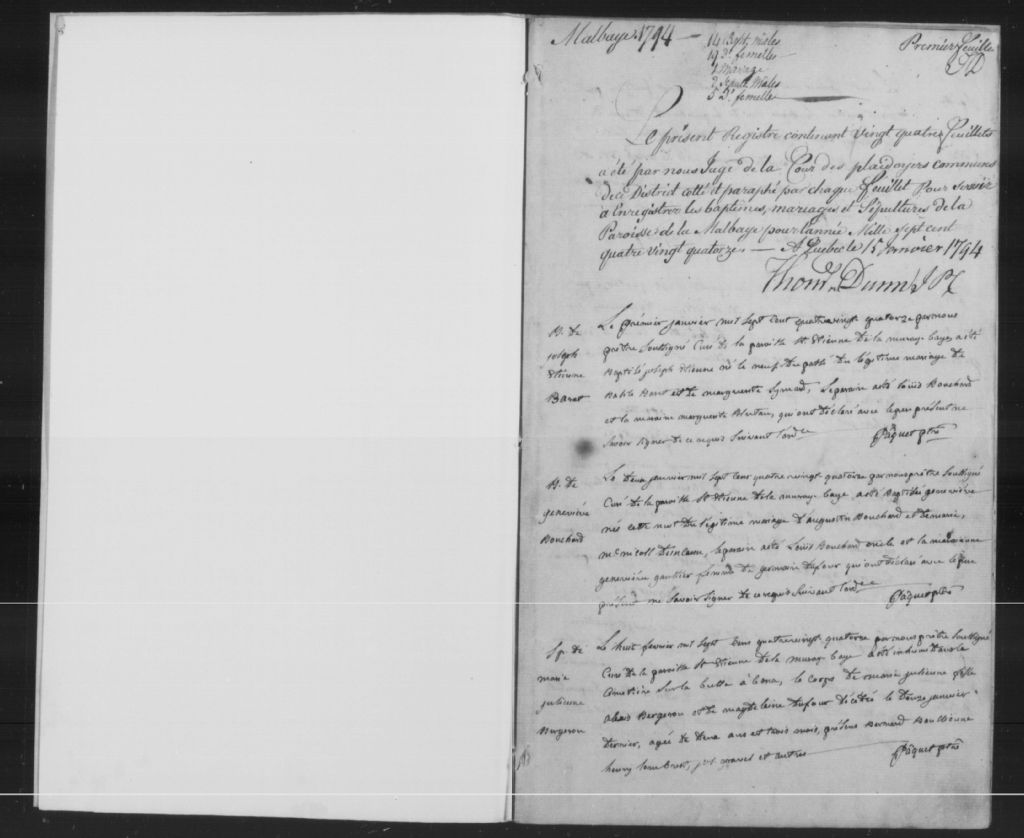 Malbaye 1794 —
14 Bapt. males
19 Dº femelles
Mariage
Sepult. Males
5 Dº femelle
Premier feuille
TD
Le présent Registre contenant vingt quatre feuillets
a été par nous Juge de la Cour des plaidoyers communs
de ce District cotté et paraphé par chaque feuillet Pour servir
à Enregistrer les baptêmes, mariages et Sépultures de la
Paroisse de la Malbaye pour l'année Mille Sept cent
quatre vingt quatorze. — A Quebec le 15 Janvier 1794
Thoms Dunn J P
B. de
joseph
étienne
Baret
Le premier janvier mil Sept Cent quatrevingt quatorze par nous
prêtre Soussigné Curé de la paroisse St étienne de la muray baye a été
Baptisé joseph étienne né le neuf du passé du légitime mariage de
et de marguerite Symard, Le parain a été louis Bouchard
et la maraine marguerite qui ont déclaré avec le père présent ne
Savoir Signer de ce requis Suivant l'ordce
Pâquet ptre
B. de
geneviève
Bouchard
Le Deux janvier mil Sept Cent quatrevingt quatorze par nous prêtre Soussigné
Curé de la paroisse St étienne de la muray baye a été Baptisée geneviève
née cette nuit du légitime mariage d'augustin Bouchard et de marie
le parain a été Louis Bouchard oncle et la maraine
geneviève gautier femme de germain Dufour qui ont déclaré avec le père
présent ne Savoir Signer de ce requis Suivant l'ordce
Pâquet ptre
Sp. de
marie
julienne
Bergeron
Le huit fevrier mil Sept Cens quatrevingt quatorze par nous prêtre Soussigné
Curé de la paroisse St étienne de la muray baye a été inhumé dans le
Cimetière Sur la butte le corps de marie julienne fille
Bergeron et de magdeleine Dufour décédée le Douze janvier
Dernier, agée de Deux ans et trois mois, présens Bernard
henry et autres
Pâquet ptre